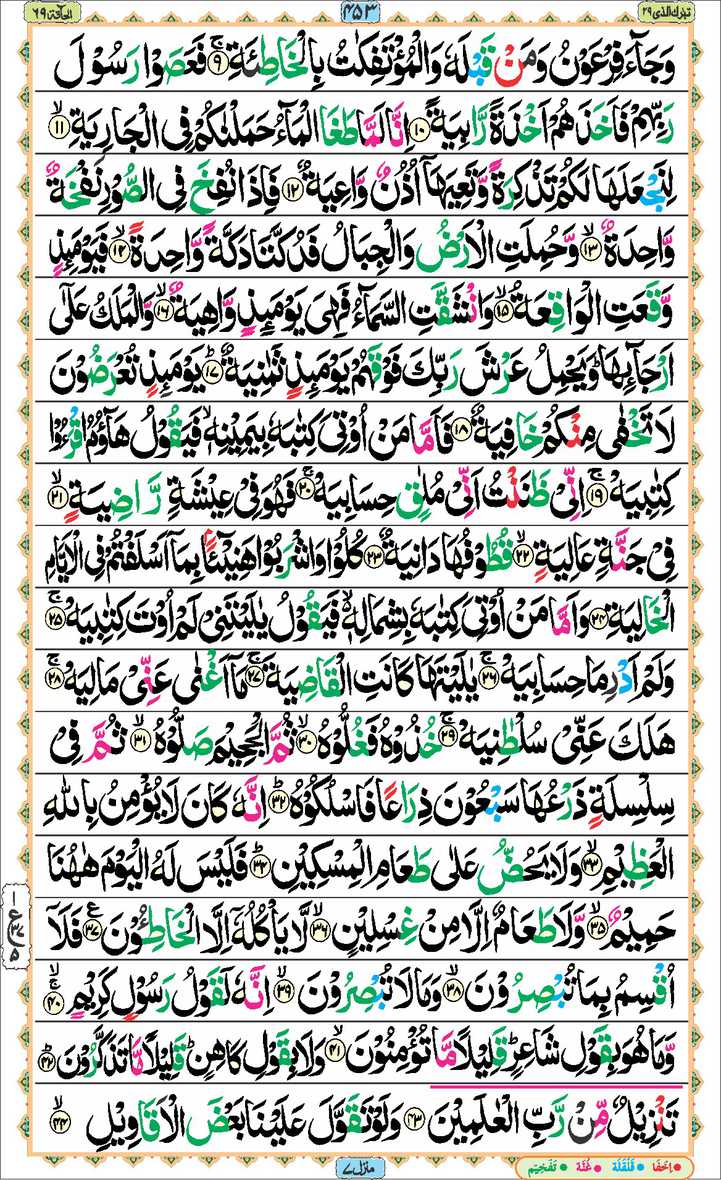 تبٰرك الذي ٢٩
٤٥٣
الحاقة ٦٩
وَجَآءَ فِرْعَوْنُ وَمَنْ قَبْلَهٗ وَالْمُؤْتَفِكٰتُ بِالْخَاطِئَةِۚ ۹ فَعَصَوْا رَسُوْلَ
رَبِّهِمْ فَاَخَذَهُمْ اَخْذَةً رَّابِيَةً ۱۰ اِنَّا لَمَّا طَغَا الْمَآءُ حَمَلْنٰكُمْ فِى الْجَارِيَةِۙ ۱۱
لِنَجْعَلَهَا لَكُمْ تَذْكِرَةً وَّتَعِيَهَاۤ اُذُنٌ وَّاعِيَةٌ ۱۲ فَاِذَا نُفِخَ فِى الصُّوْرِ نَفْخَةٌ
وَّاحِدَةٌۙ ۱۳ وَّحُمِلَتِ الْاَرْضُ وَالْجِبَالُ فَدُكَّتَا دَكَّةً وَّاحِدَةًۙ ۱۴ فَيَوْمَئِذٍ
وَّقَعَتِ الْوَاقِعَةُۙ ۱۵ وَانْشَقَّتِ السَّمَآءُ فَهِىَ يَوْمَئِذٍ وَّاهِيَةٌۙ ۱۶ وَّالْمَلَكُ عَلٰٓى
اَرْجَآئِهَاؕ وَيَحْمِلُ عَرْشَ رَبِّكَ فَوْقَهُمْ يَوْمَئِذٍ ثَمٰنِيَةٌؕ ۱۷ يَوْمَئِذٍ تُعْرَضُوْنَ
لَا تَخْفٰى مِنْكُمْ خَافِيَةٌ ۱۸ فَاَمَّا مَنْ اُوْتِىَ كِتٰبَهٗ بِيَمِيْنِهٖۙ فَيَقُوْلُ هَآؤُمُ اقْرَءُوْا
كِتٰبِيَهْۚ ۱۹ اِنِّىْ ظَنَنْتُ اَنِّىْ مُلٰقٍ حِسَابِيَهْۚ ۲۰ فَهُوَ فِىْ عِيْشَةٍ رَّاضِيَةٍۙ ۲۱
فِىْ جَنَّةٍ عَالِيَةٍۙ ۲۲ قُطُوْفُهَا دَانِيَةٌ ۲۳ كُلُوْا وَاشْرَبُوْا هَنِيْٓئًاۢ بِمَاۤ اَسْلَفْتُمْ فِى الْاَيَّامِ
الْخَالِيَةِ ۲۴ وَاَمَّا مَنْ اُوْتِىَ كِتٰبَهٗ بِشِمَالِهٖۙ فَيَقُوْلُ يٰلَيْتَنِىْ لَمْ اُوْتَ كِتٰبِيَهْۚ ۲۵
وَلَمْ اَدْرِ مَا حِسَابِيَهْۚ ۲۶ يٰلَيْتَهَا كَانَتِ الْقَاضِيَةَۚ ۲۷ مَاۤ اَغْنٰى عَنِّىْ مَالِيَهْۚ ۲۸
هَلَكَ عَنِّىْ سُلْطٰنِيَهْۚ ۲۹ خُذُوْهُ فَغُلُّوْهُۙ ۳۰ ثُمَّ الْجَحِيْمَ صَلُّوْهُۙ ۳۱ ثُمَّ فِىْ
سِلْسِلَةٍ ذَرْعُهَا سَبْعُوْنَ ذِرَاعًا فَاسْلُكُوْهُؕ ۳۲ اِنَّهٗ كَانَ لَا يُؤْمِنُ بِاللّٰهِ
الْعَظِيْمِۙ ۳۳ وَلَا يَحُضُّ عَلٰى طَعَامِ الْمِسْكِيْنِؕ ۳۴ فَلَيْسَ لَهُ الْيَوْمَ هٰهُنَا
حَمِيْمٌۙ ۳۵ وَّلَا طَعَامٌ اِلَّا مِنْ غِسْلِيْنٍۙ ۳۶ لَّا يَاْكُلُهٗۤ اِلَّا الْخَاطِـُٔوْنَ ۳۷ فَلَاۤ
اُقْسِمُ بِمَا تُبْصِرُوْنَۙ ۳۸ وَمَا لَا تُبْصِرُوْنَۙ ۳۹ اِنَّهٗ لَقَوْلُ رَسُوْلٍ كَرِيْمٍۚۙ ۴۰
وَّمَا هُوَ بِقَوْلِ شَاعِرٍؕ قَلِيْلًا مَّا تُؤْمِنُوْنَۙ ۴۱ وَلَا بِقَوْلِ كَاهِنٍؕ قَلِيْلًا مَّا تَذَكَّرُوْنَؕ ۴۲
تَنْزِيْلٌ مِّنْ رَّبِّ الْعٰلَمِيْنَ ۴۳ وَلَوْ تَقَوَّلَ عَلَيْنَا بَعْضَ الْاَقَاوِيْلِۙ ۴۴
منزل ٧
• اِخفَا • قَلقَلَة • غُنَّه • تَفخِيم